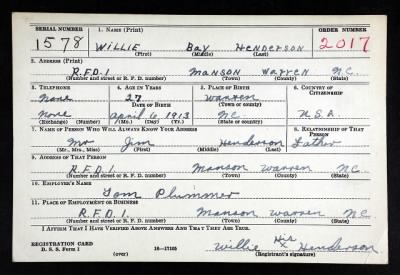 SERIAL NUMBER 1. NAME (Print) ORDER NUMBER
1578 WILLIE Ray HENDERSON 2017
(First) (Middle) (Last)
2. ADDRESS (Print)
R.F.D. 1 MANSON WARREN N.C.
(Number and street or R. F. D. number) (Town) (County) (State)
3. TELEPHONE 4. AGE IN YEARS 5. PLACE OF BIRTH 6. COUNTRY OF CITIZENSHIP
None 27 Warren
DATE OF BIRTH (Town or county)
None April 6 1913 NC U.S.A.
(Exchange) (Number) (Mo.) (Day) (Yr.) (State or country)
7. NAME OF PERSON WHO WILL ALWAYS KNOW YOUR ADDRESS 8. RELATIONSHIP OF THAT PERSON
Mr Jim Henderson Father
(Mr., Mrs., Miss) (First) (Middle) (Last)
9. ADDRESS OF THAT PERSON
R.F.D. 1 Manson Warren N.C.
(Number and street or R. F. D. number) (Town) (County) (State)
10. EMPLOYER'S NAME
Tom Plummer
11. PLACE OF EMPLOYMENT OR BUSINESS
R.F.D. 1 Manson Warren NC
(Number and street or R. F. D. number) (Town) (County) (State)
I AFFIRM THAT I HAVE VERIFIED ABOVE ANSWERS AND THAT THEY ARE TRUE.
REGISTRATION CARD
D. S. S. Form 1 16-17105 Willie His X Henderson
(over) (Registrant's signature)